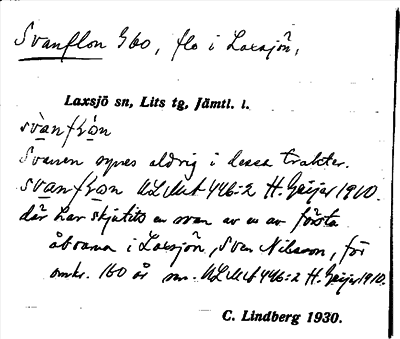 Svanflon 360, flo i Laxsjön,
Laxsjö sn, Lits tg, Jämtl. l.
svànfłòn
Svanen synes aldrig i dessa trakter.
svanfłon ULMA 446:2 H. Geijer 1910.
där har skjutits en svan av en av första
åboarna i Laxsjön, Sven Nilsson, för
omkr. 160 år sn. ULMA 446:2 H. Geijer 1910.
C. Lindberg 1930.